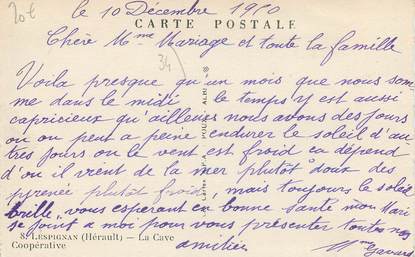 20€
le 10 Décembre 1950
CARTE POSTALE
Chère Mme Mariage et toute la famille
34
Voila presque qu'un mois que nous som
me dans le midi le temps y est aussi
capricieux qu'ailleurs nous avons des jours
ou on peut a peine endurer le soleil d'au
tres jours ou le vent est froid ca dépend
d'ou il vient de la mer plutôt doux des
pirenée plutôt froid, mais toujours le soleil
brille, vous esperant en bonne santé mon Mari
se joint a moi pour vous présenter toutes nos
amitiés
Mme
8. LESPIGNAN (Hérault) — La Cave
Coopérative